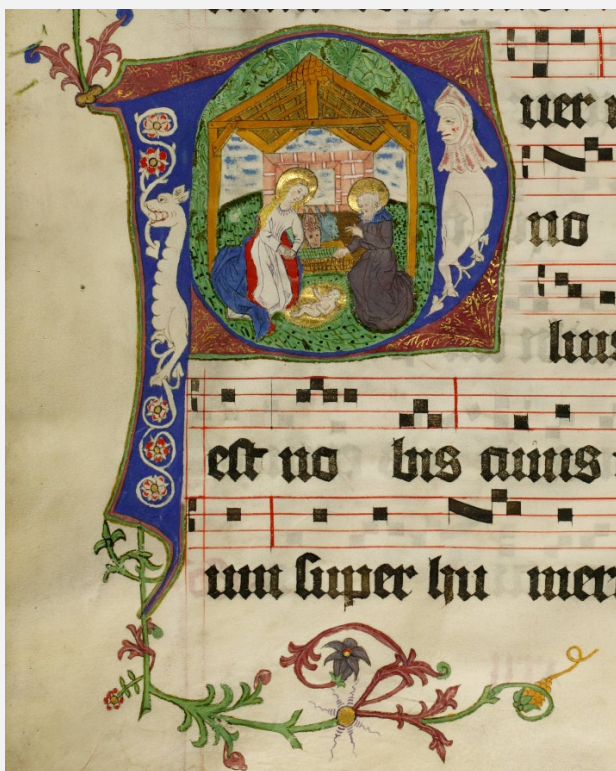 Puer
no
lius
est no bis cuius
um super hu mer